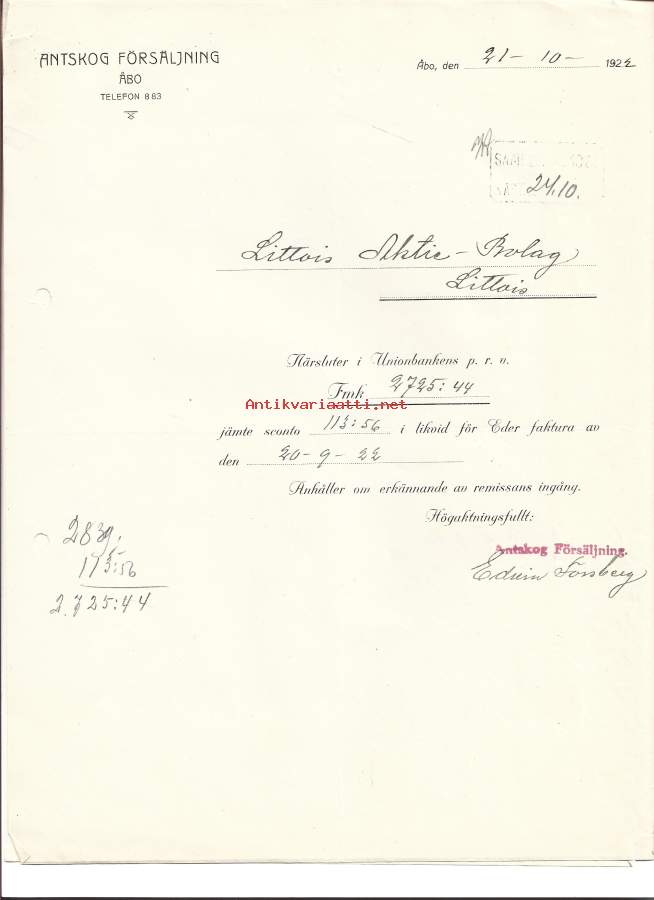 ANTSKOG FÖRSÄLJNING
ÅBO
TELEFON 883
Åbo, den 21-10- 1922
24.10.
Littois Aktie-Bolag
Littois
Härsluter i Unionbankens p. r. v.
Fmk 2725:44
Antikvariaatti.net
jämte sconto 113:56 i likvid för Eder faktura av
den 20-9-22
Anhåller om erkännande av remissans ingång.
Högaktningsfullt:
Antskog Försäljning.
Edvin Forsberg
2839.-
113:56
2.725:44